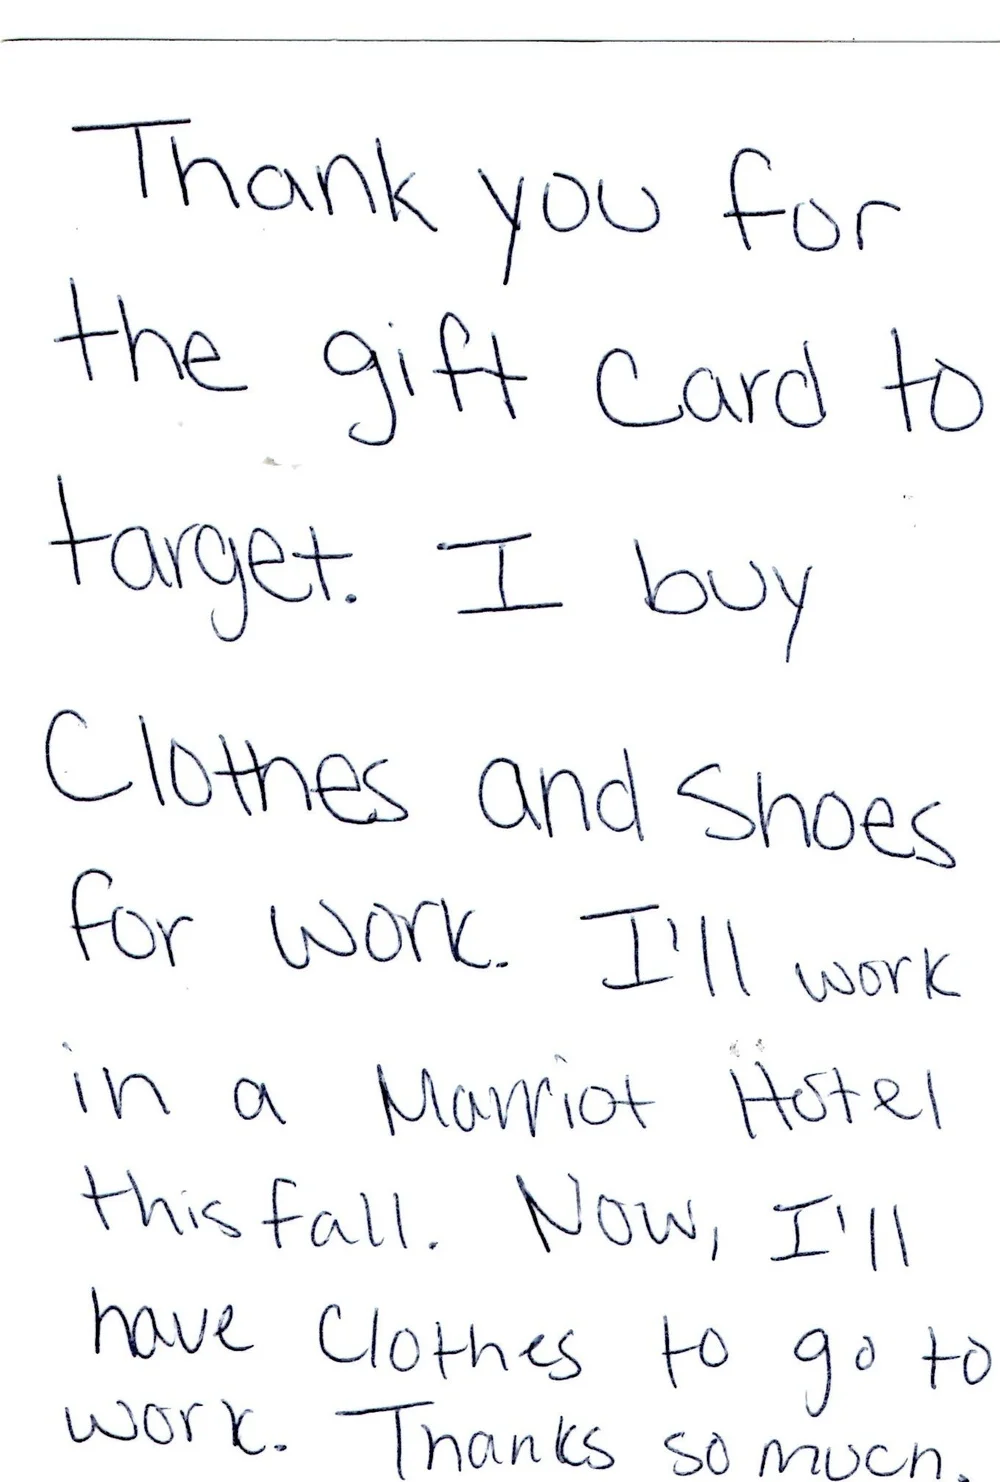 Thank you for
the gift Card to
target. I buy
Clothes and Shoes
for work. I'll work
in a Marriot Hotel
this fall. Now, I'll
have Clothes to go to
work. Thanks so much.